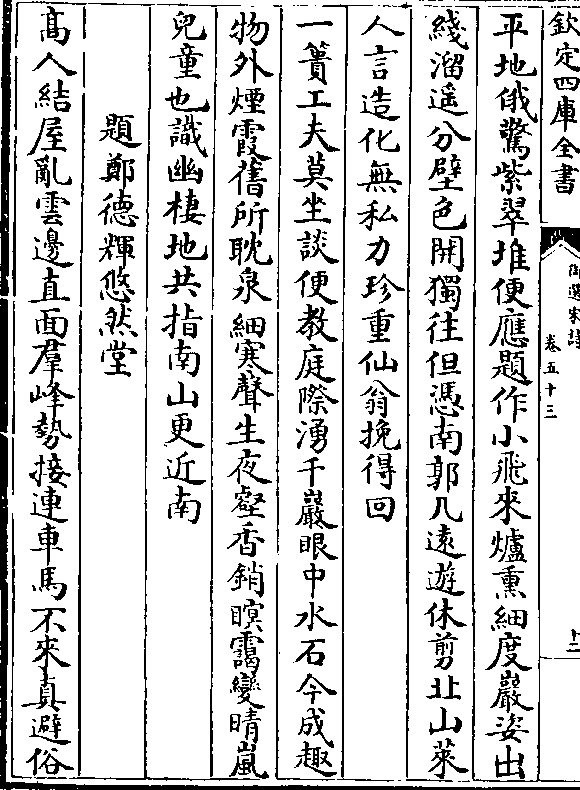 欽定四庫全書
御選宋詩
卷五十三
十二
平地俄驚紫翠堆便應題作小飛來爐熏細度巖姿出
綫溜遥分壁色開獨往但憑南郭几遠遊休剪北山萊
人言造化無私力珍重仙翁挽得回
一簣工夫莫坐談便教庭際湧千巖眼中水石今成趣
物外煙霞舊所耽泉細寒聲生夜壑香銷暝靄變晴嵐
兒童也識幽棲地共指南山更近南
題鄭德輝悠然堂
髙人結屋亂雲邊直面羣峰勢接連車馬不來真避俗